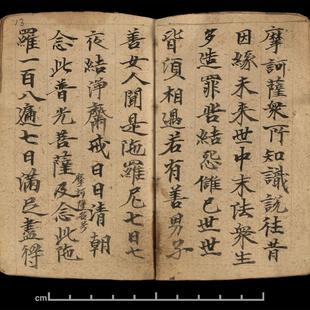 摩訶薩衆所知識説往昔
因緣未来世中末法衆生
多造罪苦結怨讎已世世
皆須相遇若有善男子
善女人聞是陁羅尼七日七
夜結浄齋戒日日清朝
念此普光菩薩摩訶薩名号及念此陁
羅一百八遍七日滿已盡得
13
cm